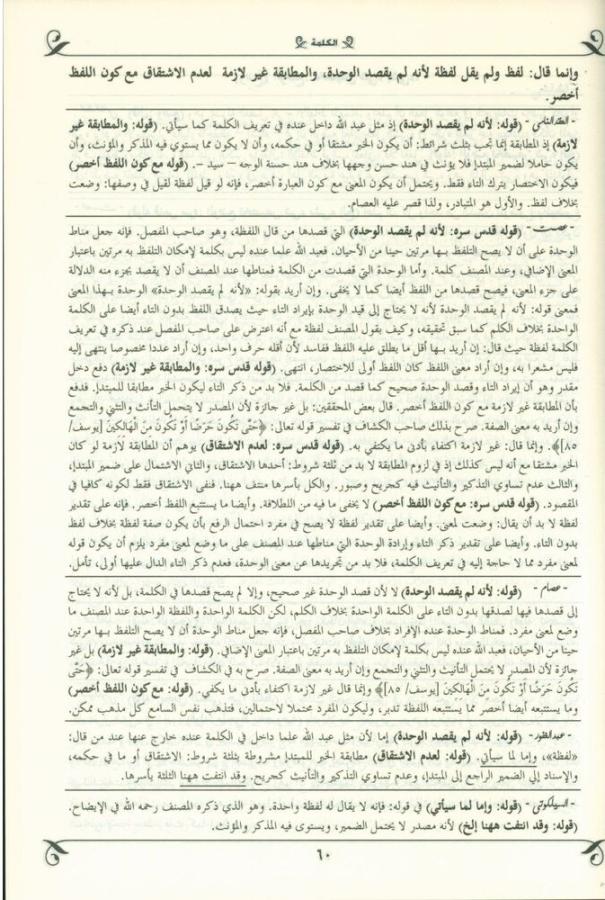 الكلمة
وإنما قال: لفظ ولم يقل لفظة لأنه لم يقصد الوحدة، والمطابقة غير لازمة لعدم الاشتقاق مع كون اللفظ
أخصر.
(قوله: لأنه لم يقصد الوحدة) إذ مثل عبد الله داخل عنده في تعريف الكلمة كما سيأتي. (قوله: والمطابقة غير
لازمة) إذ المطابقة إنما تجب بثلث شرائط: أن يكون الخبر مشتقا أو في حكمه، وأن لا يكون مما يستوي فيه المذكر والمؤنث، وأن
يكون حاملا لضمير المبتدإ فلا يؤنث في هند حسن وجهها بخلاف هند حسنة الوجه – سيد –. (قوله مع كون اللفظ أخصر)
فيكون الاختصار بترك التاء فقط. ويحتمل أن يكون المعنى مع كون العبارة أخصر، فإنه لو قيل لفظة لقيل في وصفها: وضعت
بخلاف لفظ. والأول هو المتبادر، ولذا قصر عليه العصام.
- عصمت - (قوله قدس سره: لأنه لم يقصد الوحدة) التي قصدها من قال اللفظة، وهو صاحب المفصل. فإنه جعل مناط
الوحدة على أن لا يصح التلفظ بها مرتين حينا من الأحيان. فعبد الله علما عنده ليس بكلمة لإمكان التلفظ به مرتين باعتبار
المعنى الإضافي، وعند المصنف كلمة. وأما الوحدة التي قصدت من الكلمة فمناطها عند المصنف أن لا يقصد بجزء منه الدلالة
على جزء المعنى، فيصح قصدها من اللفظ أيضا كما لا يخفى. وإن أريد بقوله: «لأنه لم يقصد الوحدة» الوحدة بهذا المعنى
فمعنى قوله: لأنه لم يقصد الوحدة لأنه لا يحتاج إلى قيد الوحدة بإيراد التاء حيث يصدق اللفظ بدون التاء أيضا على الكلمة
الواحدة بخلاف الكلم كما سبق تحقيقه، وكيف بقول المصنف لفظة مع أنه اعترض على صاحب المفصل عند ذكره في تعريف
الكلمة لفظة حيث قال: إن أريد بها أقل ما يطلق عليه اللفظ ففاسد لأن أقله حرف واحد، وإن أراد عددا مخصوصا ينتهى إليه
فليس مشعرا به، وإن أراد معنى اللفظ كان اللفظ أولى للاختصار، انتهى. (قوله قدس سره: والمطابقة غير لازمة) دفع دخل
مقدر وهو أن إيراد التاء وقصد الوحدة صحيح كما قصد من الكلمة. فلا بد من ذكر التاء ليكون الخبر مطابقا للمبتدإ. فدفع
بأن المطابقة غير لازمة مع كون اللفظ أخصر. قال بعض المحققين: بل غير جائزة لأن المصدر لا يتحمل التأنث والتثني والتجمع
وإن أريد به معنى الصفة. صرح بذلك صاحب الكشاف في تفسير قوله تعالى: ﴿حَتَّى تَكُونَ حَرَضًا أَوْ تَكُونَ مِنَ الْهَالِكِينَ [يوسف/
٨٥]﴾. وإنما قال: غير لازمة اكتفاء بأدنى ما يكتفي به. (قوله قدس سره: لعدم الاشتقاق) يوهم أن المطابقة لازمة لو كان
الخبر مشتقا مع أنه ليس كذلك إذ في لزوم المطابقة لا بد من ثلثة شروط: أحدها الاشتقاق، والثاني الاشتمال على ضمير المبتدإ،
والثالث عدم تساوي التذكير والتأنيث فيه كجريح وصبور. والكل بأسرها منتف ههنا. فنفى الاشتقاق فقط لكونه كافيا في
المقصود. (قوله قدس سره: مع كون اللفظ أخصر) لا يخفى ما فيه من اللطافة. وأيضا ما يستتبع اللفظ أخصر. فإنه على تقدير
لفظة لا بد أن يقال: وضعت لمعنى. وأيضا على تقدير لفظة لا يصح في مفرد احتمال الرفع بأن يكون صفة لفظة بخلاف لفظ
بدون التاء. وأيضا على تقدير ذكر التاء وإرادة الوحدة التي مناطها عند المصنف على ما وضع لمعنى مفرد يلزم أن يكون قوله
لمعنى مفرد مما لا حاجة إليه في تعريف الكلمة، فلا بد من تجريدها عن معنى الوحدة، فعدم ذكر التاء الدال عليها أولى، تأمل.
- عصام - (قوله: لأنه لم يقصد الوحدة) لا لأن قصد الوحدة غير صحيح، وإلا لم يصح قصدها في الكلمة، بل لأنه لا يحتاج
إلى قصدها فيها لصدقها بدون التاء على الكلمة الواحدة بخلاف الكلم، لكن الكلمة الواحدة واللفظة الواحدة عند المصنف ما
وضع لمعنى مفرد. فمناط الوحدة عنده الإفراد بخلاف صاحب المفصل، فإنه جعل مناط الوحدة أن لا يصح التلفظ بها مرتين
حينا من الأحيان، فعبد الله عنده ليس بكلمة لإمكان التلفظ به مرتين باعتبار المعنى الإضافي. (قوله: والمطابقة غير لازمة) بل غير
جائزة لأن المصدر لا يحتمل التأنيث والتثني والتجمع وإن أريد به معنى الصفة. صرح به في الكشاف في تفسير قوله تعالى: ﴿حَتَّى
تَكُونَ حَرَضًا أَوْ تَكُونَ مِنَ الْهَالِكِينَ [يوسف/ ٨٥]﴾ وإنما قال غير لازمة اكتفاء بأدنى ما يكفي. (قوله: مع كون اللفظ أخصر)
وما يستتبعه أيضا أخصر مما يستتبعه اللفظة تدبر، وليكون المفرد محتملا لاحتمالين، فتذهب نفس السامع كل مذهب ممكن.
- عبد الغفور - (قوله: لأنه لم يقصد الوحدة) إما لأن مثل عبد الله علما داخل في الكلمة عنده خارج عنها عند من قال:
«لفظة»، وإما لما سيأتي. (قوله: لعدم الاشتقاق) مطابقة الخبر للمبتدإ مشروطة بثلثة شروط: الاشتقاق أو ما في حكمه،
والإسناد إلي الضمير الراجع إلى المبتدإ، وعدم تساوي التذكير والتأنيث كجريح. وقد انتفت ههنا الثلثة بأسرها.
- السيلكوتي - (قوله: وإما لما سيأتي) في قوله: فإنه لا يقال له لفظة واحدة. وهو الذي ذكره المصنف رحمه الله في الإيضاح.
(قوله: وقد انتفت ههنا إلخ) لأنه مصدر لا يحتمل الضمير، ويستوي فيه المذكر والمؤنث.
٦٠